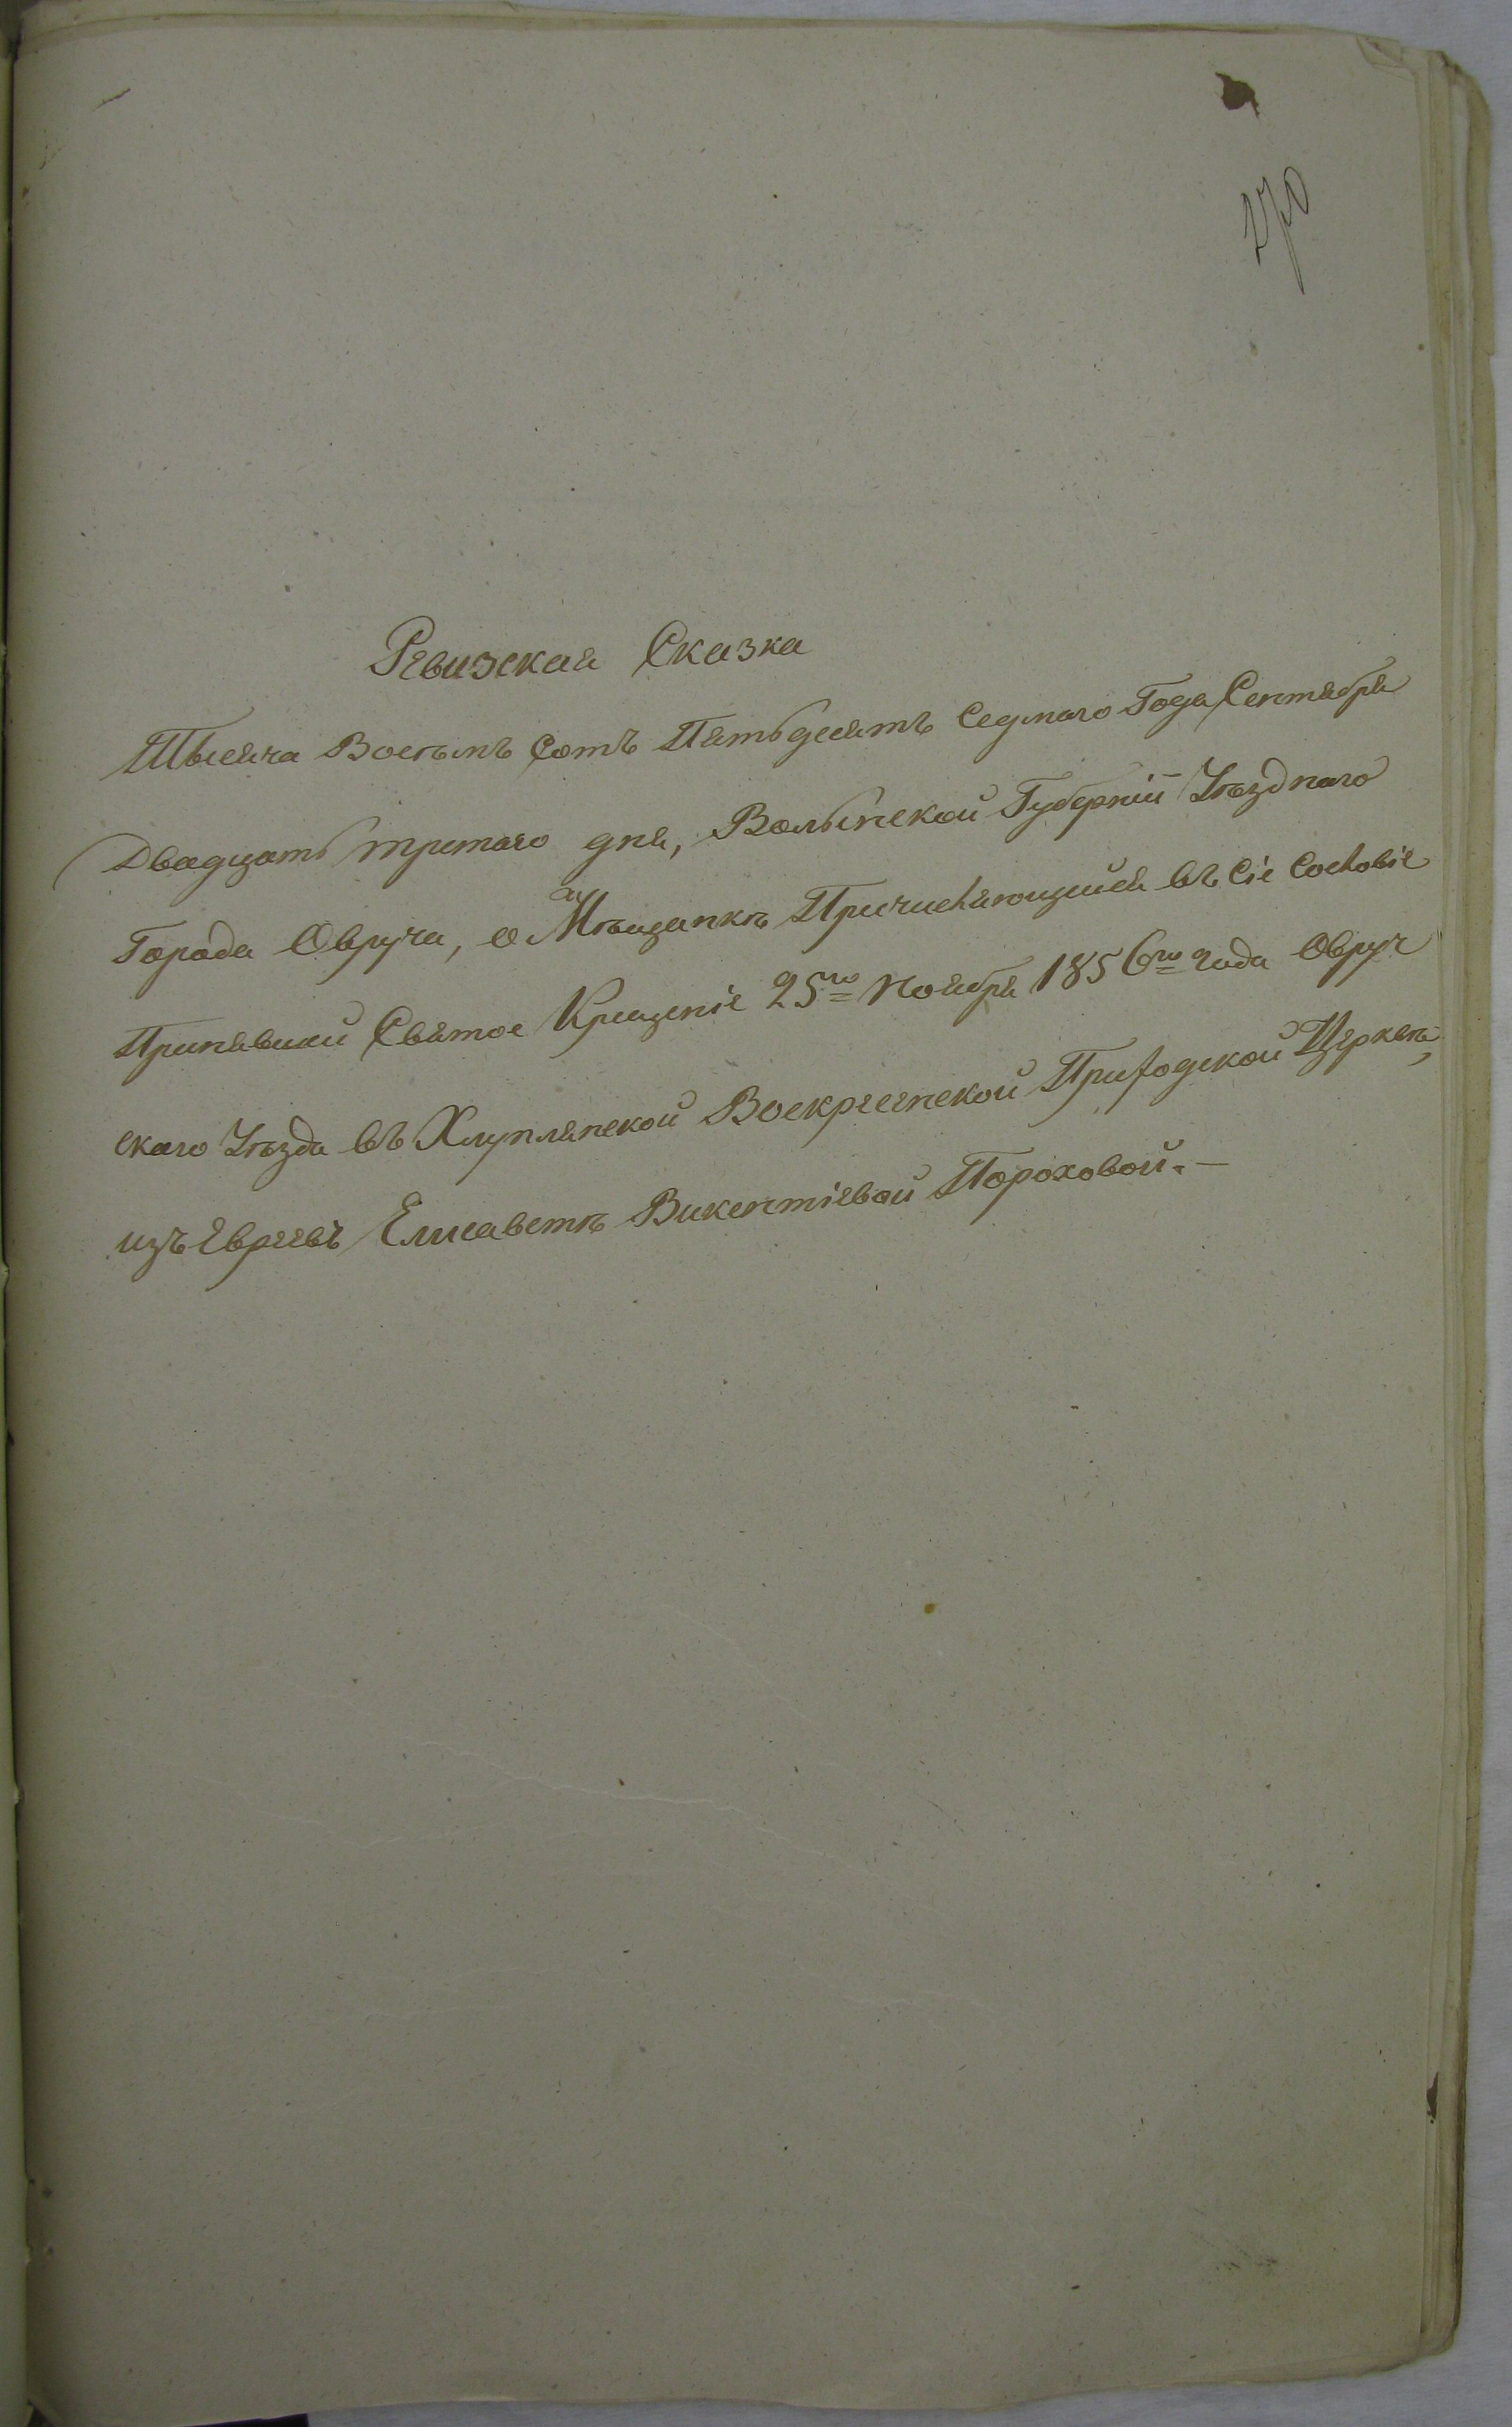 270
Ревизская Сказка
Тысяча Восемъ Сотъ Пятьдесятъ Седмаго Года Сентября
Двадцать третаго дня, Волынской Губерніи Уѣзднаго
Города Овруча, о Мѣщанкѣ Причисляющийся въ Сіе Сословіе
Принявшей Святое Крещеніе 25го Ноября 1856го года Овруч
скаго Уѣзда въ Хлуплянской Воскресенской Приходской Церкви,
изъ Евреевъ Елисаветѣ Викентіевой Пороховой. —